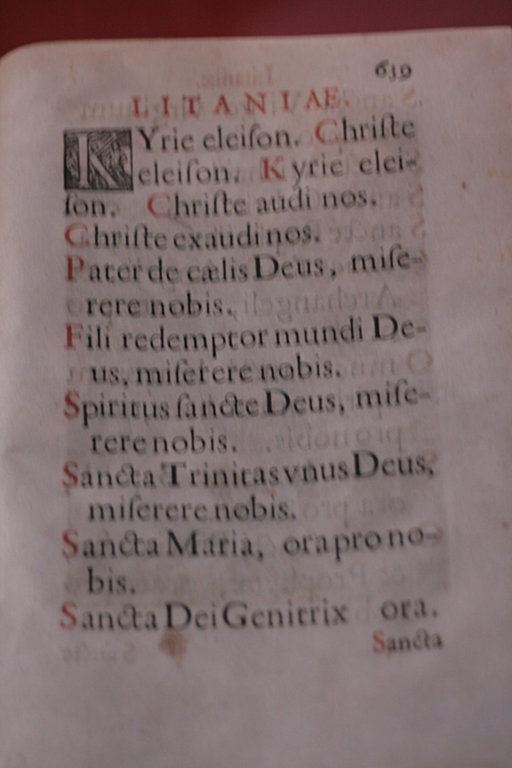 639
LITANIAE.
KYrie eleiſon. Chriſte
eleiſon. Kyrie elei-
ſon. Chriſte audi nos.
Chriſte exaudi nos.
Pater de cælis Deus, miſe-
rere nobis.
Fili redemptor mundi De-
us, miſerere nobis.
Spiritus ſancte Deus, miſe-
rere nobis.
Sancta Trinitas vnus Deus,
miſerere nobis.
Sancta Maria, ora pro no-
bis.
Sancta Dei Genitrix ora.
Sancta